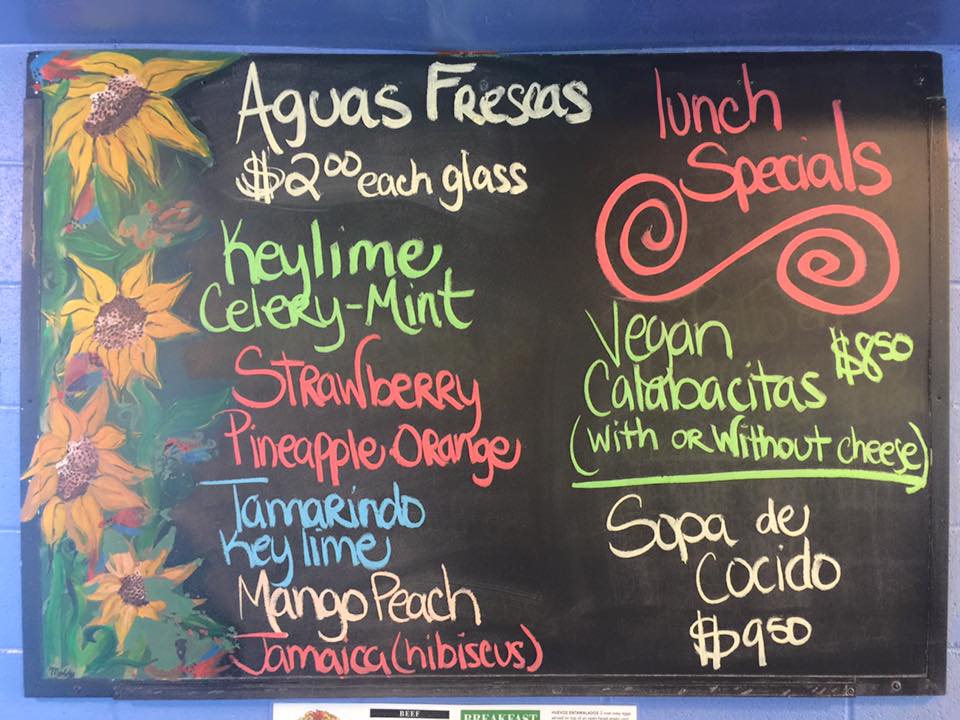 Aguas Frescas
$2.00 each glass
Keylime
Celery-Mint
Strawberry
Pineapple-Orange
Tamarindo
Key lime
Mango Peach
Jamaica (hibiscus)
lunch
Specials
Vegan $8.50
Calabacitas
(with or without cheese)
Sopa de
Cocido
$9.50
BEEF
BREAKFAST